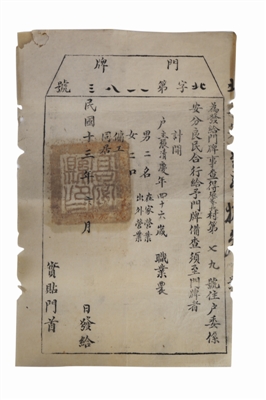 門牌
北字第一一八三號
為發給門牌事查得村第七九號住戶委係
安分良民合行給予門牌備查須至門牌者
計開
戶主張清慶年四十六歲 職業農
男二名 在家營業
女二口 出外營業
傭工
同居
民國十三年 月 日發給
實貼門首